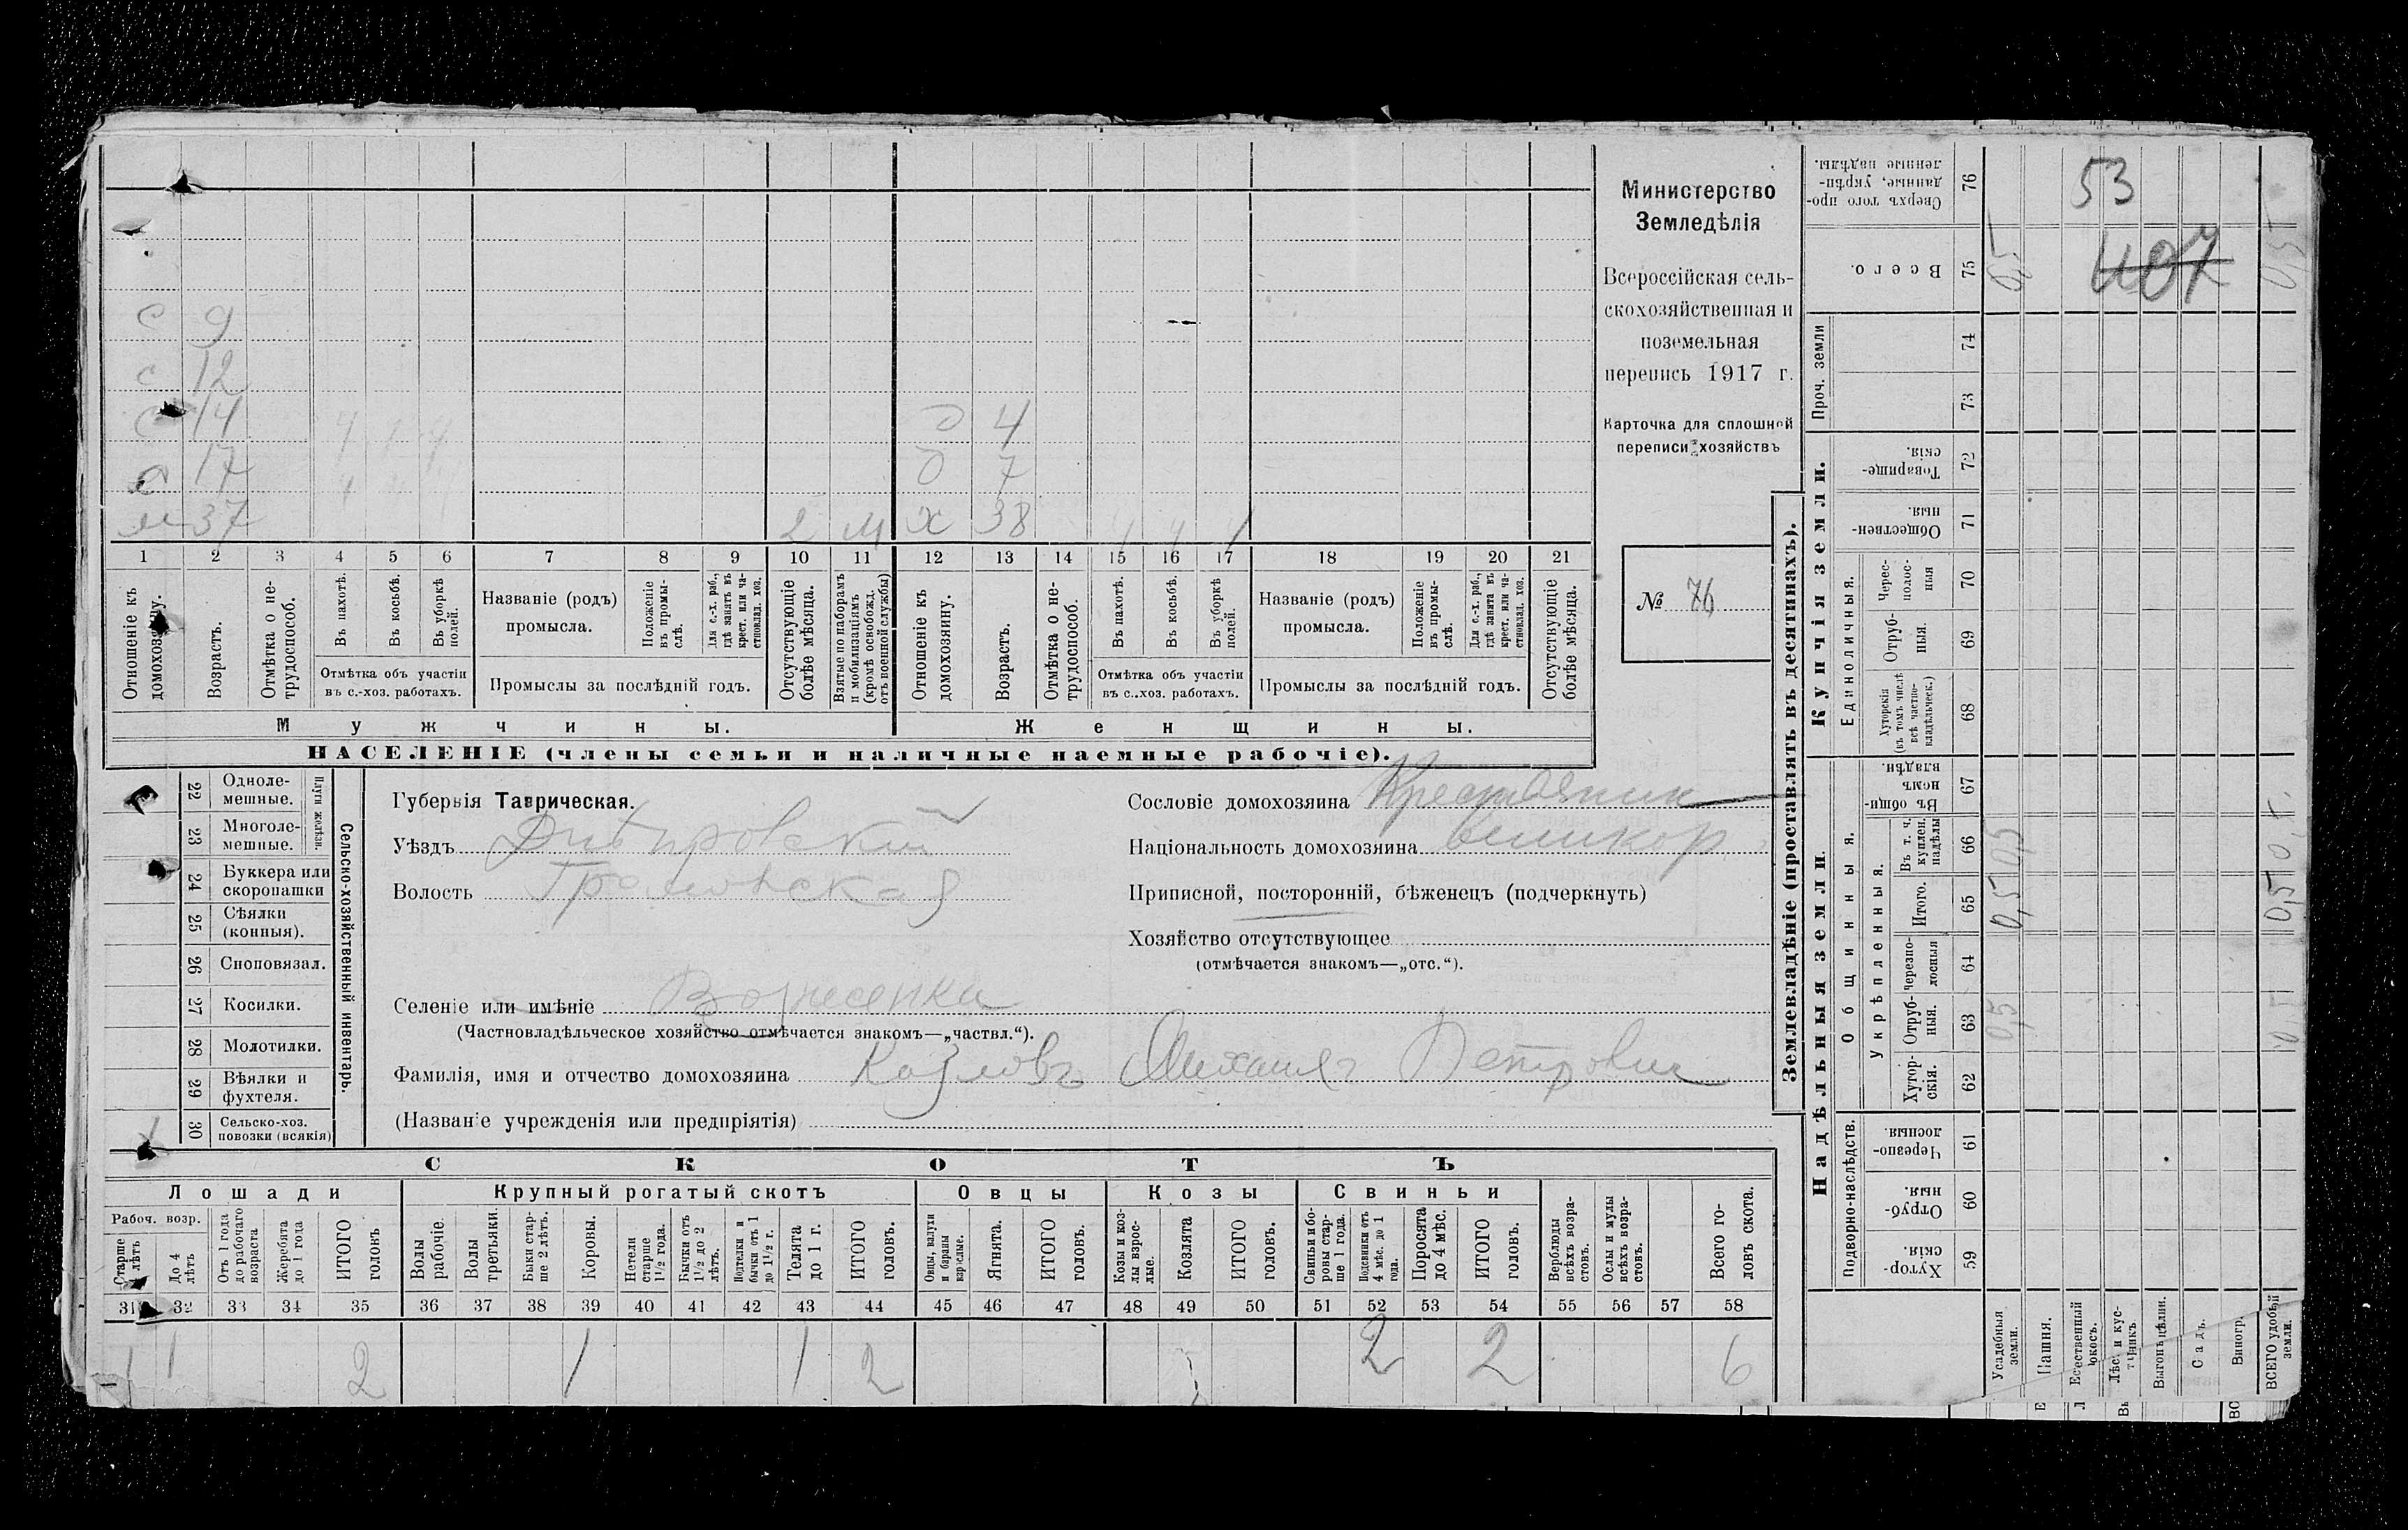 с 9
с 12
с 14 ч 1 ч
с 17
м 37 2 м
д 4
д 7
х 38 ч ч 1
1 2 3 4 5 6 7 8 9 10 11 12 13 14 15 16 17 18 19 20 21
Отношеніе къ домохозяину.
Возрастъ.
Отмѣтка о нетрудоспособ.
Въ пахотѣ.
Въ косьбѣ.
Въ уборкѣ полей.
Отмѣтка объ участіи въ с.-хоз. работахъ.
Названіе (родъ) промысла.
Положеніе въ промыслѣ.
Для с.-х. раб., гдѣ занятъ въ крест. или частновлад. хоз.
Промыслы за послѣдній годъ.
Отсутствующіе болѣе мѣсяца.
Взятые по наборамъ и мобилизаціямъ (кромѣ освобожд. отъ военной службы)
Отношеніе къ домохозяину.
Возрастъ.
Отмѣтка о нетрудоспособ.
Въ пахотѣ.
Въ косьбѣ.
Въ уборкѣ полей.
Отмѣтка объ участіи въ с..хоз. работахъ.
Названіе (родъ) промысла.
Положеніе въ промыслѣ.
Для с.-х. раб., гдѣ занята въ крест. или частновлад. хоз.
Промыслы за послѣдній годъ.
Отсутствующіе болѣе мѣсяца.
Мужчины.
Женщины.
НАСЕЛЕНІЕ (члены семьи и наличные наемные рабочіе).
Министерство
Земледѣлія
Всероссійская сель-
скохозяйственная и
поземельная
перепись 1917 г.
Карточка для сплошной
переписи хозяйствъ
№ 76
22 Одноле-
мешные.
23 Многоле-
мешные.
Плуги желѣзн.
24 Буккера или
скоропашки
25 Сѣялки
(конныя).
26 Сноповязал.
27 Косилки.
28 Молотилки.
29 Вѣялки и
фухтеля.
30 Сельско-хоз.
повозки (всякія)
1
Сельско-хозяйственный инвентарь.
Губернія Таврическая.
Уѣздъ Днѣпровскій
Волость Громовская
Селеніе или имѣніе Вознесенка
(Частновладѣльческое хозяйство отмѣчается знакомъ—„частвл.“).
Фамилія, имя и отчество домохозяина Козловъ Михаилъ Петрович
(Названіе учрежденія или предпріятія)
Сословіе домохозяина Крестьянин
Національность домохозяина великор
Приписной, посторонній, бѣженецъ (подчеркнуть)
Хозяйство отсутствующее
(отмѣчается знакомъ—„отс.“).
СКОТЪ
Лошади
Рабоч. возр.
До 4 лѣтъ
Отъ 1 года до рабочаго возраста
Жеребята до 1 года
ИТОГО головъ
Крупный рогатый скотъ
Волы рабочіе.
Волы третьяки.
Быки старше 2 лѣтъ.
Коровы.
Нетели старше 1 1/2 года.
Бычки отъ 1 1/2 до 2 лѣтъ.
Подтелки и бычки отъ 1 до 1 1/2 г.
Телята до 1 г.
ИТОГО головъ.
Овцы
Овцы, валухи и бараны взрослые.
Ягнята.
ИТОГО головъ.
Козы
Козы и козлы взрослые.
Козлята
ИТОГО головъ.
Свиньи
Свиньи и боровы старше 1 года.
Подсвинки отъ 4 мѣс. до 1 года.
Поросята до 4 мѣс.
ИТОГО головъ.
Верблюды всѣхъ возрастовъ.
Ослы и мулы всѣхъ возрастовъ.
Всего головъ скота.
31 32 33 34 35 36 37 38 39 40 41 42 43 44 45 46 47 48 49 50 51 52 53 54 55 56 57 58
1 1 2 1 1 2 2 2 6
Землевладѣніе (проставлять въ десятинахъ).
Купчія земли.
Надѣльныя земли
Сверхъ того проданные, укрѣпленные надѣлы. 76
53
Всего. 75 0,5 407 0,5
Проч. земли
74
73
Товарищескія. 72
Общественныя. 71
Единоличныя.
Чересполосныя 70
Отрубныя. 69
Хуторскія (въ томъ числѣ всѣ частновладѣльческ.) 68
Общинныя.
Въ общинномъ владѣн. 67
Укрѣпленныя.
Въ т. ч. куплен. надѣлы 66 0,5
Итого. 65 0,5 0,5
Черезполосныя 64
Отрубныя. 63 0,5 0,5
Хуторскія. 62
Подворно-наслѣдств.
Черезполосныя. 61
Отрубныя. 60
Хуторскія. 59
Усадебныя земли.
Пашня.
Естественный покосъ.
Лѣсъ и кустарникъ.
Выгонъ цѣлин.
Садъ.
Виногр.
ВСЕГО удобной земли.